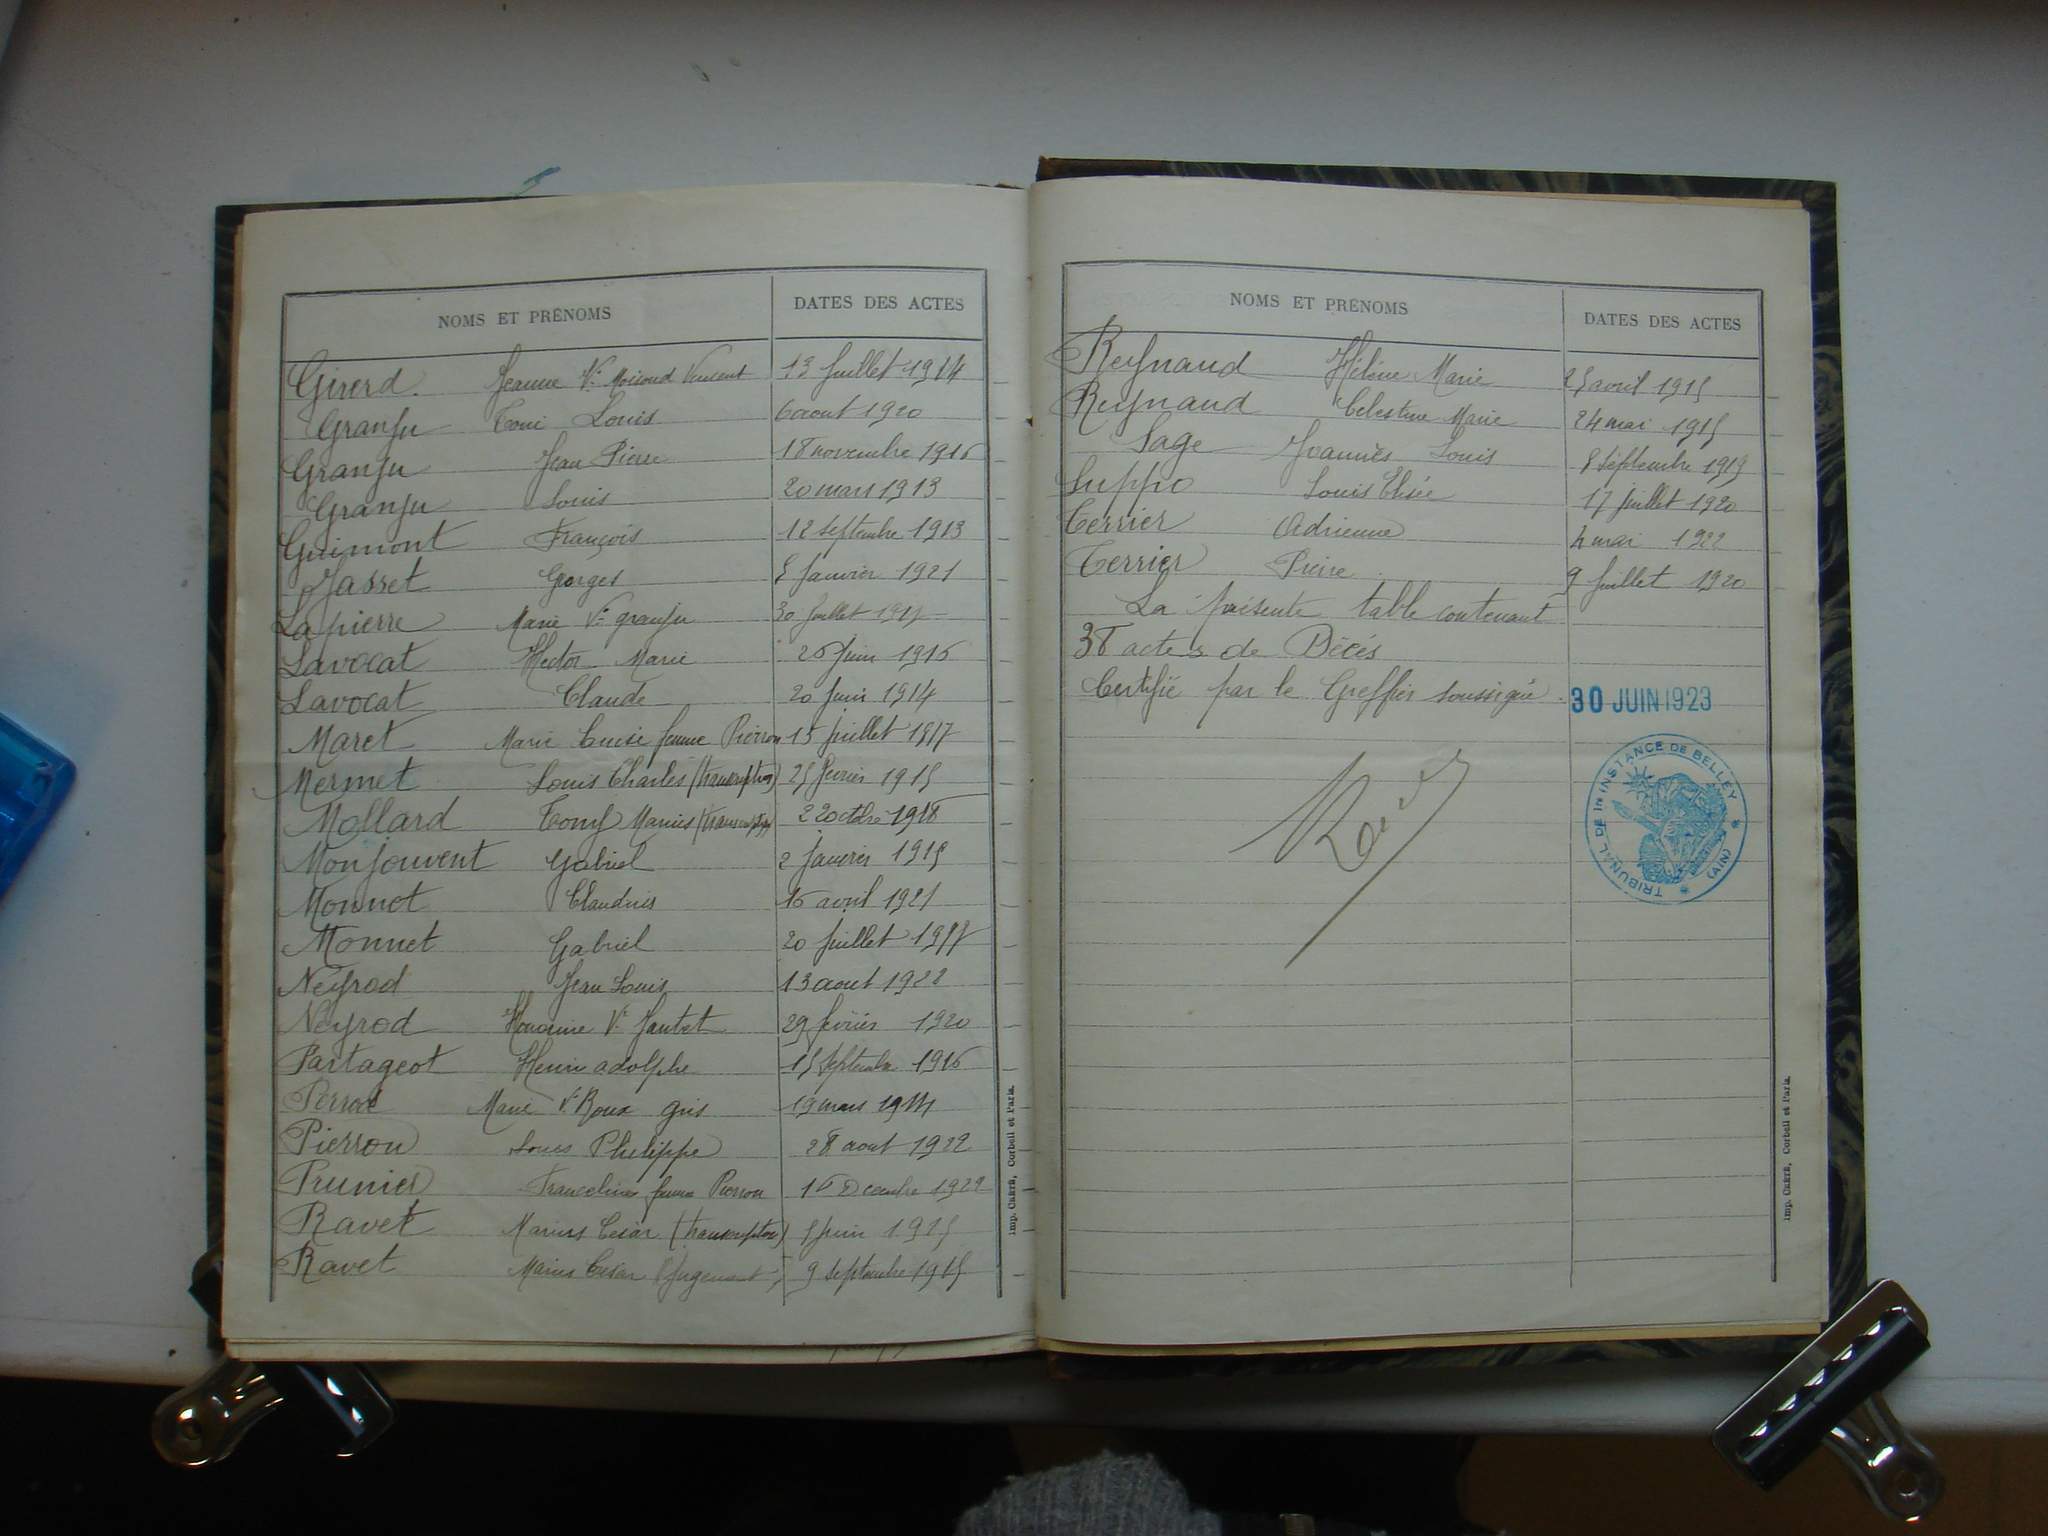 NOMS ET PRÉNOMS DATES DES ACTES
Girerd Jeanne Vve Vincent 13 Juillet 1914
Granju Louis 6 aout 1920
Granju Jean Pierre 18 novembre 1916
Granju Louis 20 mars 1913
Guimont François 12 septembre 1913
Jasset Gorges Janvier 1921
Lapierre Marie Vve granju 30 Juillet
Lavocat Hector Marie 26 Juin 1916
Lavocat Claude 20 Juin 1914
Maret Marie femme Pierron 15 Juillet 1917
Mermet Louis Charles (transcription) 25 février 1915
Mollard Tony Marius (transcription) 22 octobre 1918
Monjouvent Gabriel 2 Janvier
Monnet Claudius 16 avril 1921
Monnet Gabriel 20 Juillet
Neyrod Jean Louis 13 aout 1922
Neyrod Honorine Vve 29 février 1920
Partageot Henri adolphe 15 Septembre 1916
Marie Vve Roux gris 19 mars
Pierron Louis Philippe 28 aout 1922
Prunier Franceline femme Pierron Décembre 1922
Ravet Marius César (transcription) Juin 1915
Ravet Marius César (Jugement) 9 septembre 1915
Imp. CRÉTÉ, Corbeil et Paris.
NOMS ET PRÉNOMS DATES DES ACTES
Reynaud Hélène Marie 25 avril 1915
Reynaud Celestine Marie 24 mai 1915
Sage Joannès Louis 8 septembre 1919
Suppo Louis Elisée 17 Juillet 1920
Terrier Adrienne 4 mai 1922
Terrier Pierre 9 Juillet 1920
La présente table contenant
38 actes de Décés
Certifié par le Greffier soussigné.
30 JUIN 1923
TRIBUNAL DE 1re INSTANCE DE BELLEY (AIN)
Imp. CRÉTÉ, Corbeil et Paris.